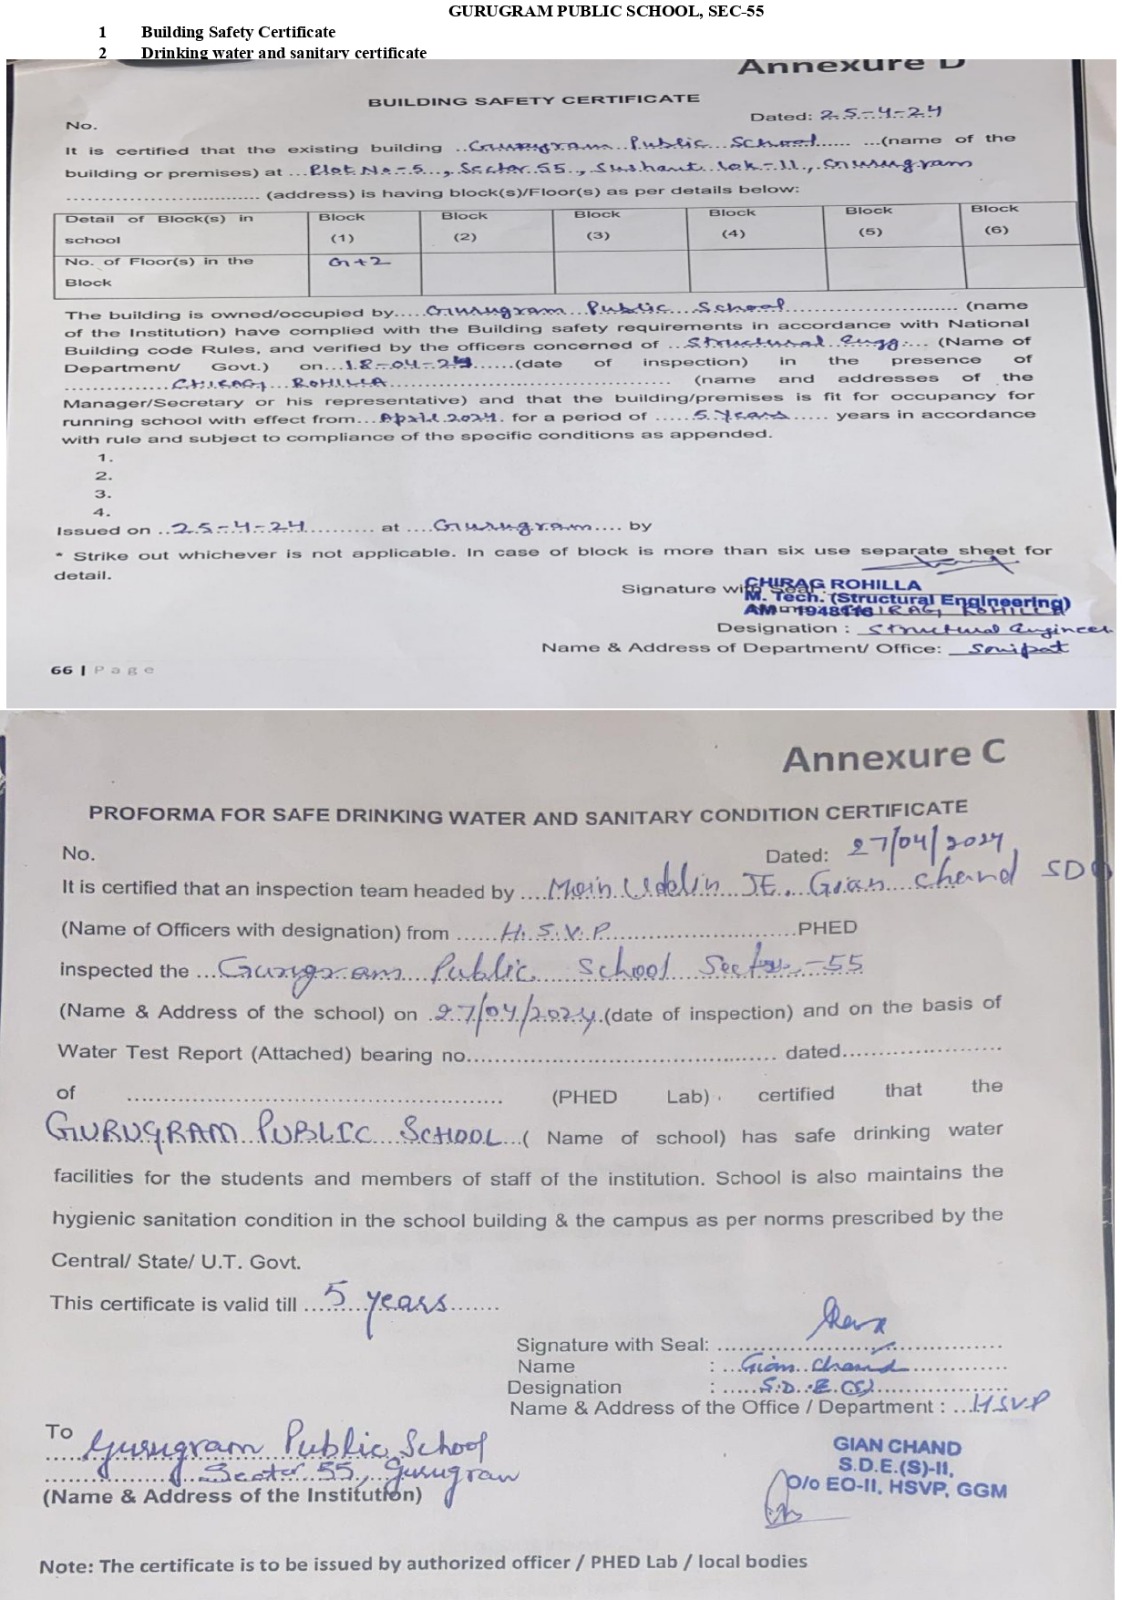 GURUGRAM PUBLIC SCHOOL, SEC-55
1 Building Safety Certificate
2 Drinking water and sanitary certificate
Annexure D
BUILDING SAFETY CERTIFICATE
No.
Dated: 25-4-24
It is certified that the existing building ..Gurugram Public School...... ...(name of the
building or premises) at ...Plot No-5.., Sector 55., Sushant Lok-II., Gurugram
.............................. (address) is having block(s)/Floor(s) as per details below:
Detail of Block(s) in school Block (1) Block (2) Block (3) Block (4) Block (5) Block (6)
No. of Floor(s) in the Block G+2
The building is owned/occupied by.....Gurugram Public School.......................... (name
of the Institution) have complied with the Building safety requirements in accordance with National
Building code Rules, and verified by the officers concerned of ..Structural Engg.... (Name of
Department/ Govt.) on...18-04-24......(date of inspection) in the presence of
....................CHIRAG ROHILLA.......................................... (name and addresses of the
Manager/Secretary or his representative) and that the building/premises is fit for occupancy for
running school with effect from...April 2024. for a period of ......5 Years...... years in accordance
with rule and subject to compliance of the specific conditions as appended.
1.
2.
3.
4.
Issued on ..25-4-24.......... at ....Gurugram.... by
* Strike out whichever is not applicable. In case of block is more than six use separate sheet for
detail.
Signature with Seal :
CHIRAG ROHILLA
M. Tech. (Structural Engineering)
AM - 1948116
CHIRAG ROHILLA
Designation : Structural Engineer
Name & Address of Department/ Office: Sonipat
66 | Page
Annexure C
PROFORMA FOR SAFE DRINKING WATER AND SANITARY CONDITION CERTIFICATE
No.
Dated: 27/04/2024
It is certified that an inspection team headed by ....Moin Uddin JE, Gian chand SDO
(Name of Officers with designation) from ......H.S.V.P...........................PHED
inspected the ...Gurugram Public School Sector-55
(Name & Address of the school) on .27/04/2024.(date of inspection) and on the basis of
Water Test Report (Attached) bearing no............................................... dated........................
of ........................................................ (PHED Lab) certified that the
GURUGRAM PUBLIC SCHOOL...( Name of school) has safe drinking water
facilities for the students and members of staff of the institution. School is also maintains the
hygienic sanitation condition in the school building & the campus as per norms prescribed by the
Central/ State/ U.T. Govt.
This certificate is valid till ....5 years.......
Signature with Seal: ..........................................
Name : ...Gian Chand...............
Designation : .....S.D.E.(S)...................
Name & Address of the Office / Department : ...HSVP
To Gurugram Public School
Sector 55, Gurugram
(Name & Address of the Institution)
GIAN CHAND
S.D.E.(S)-II,
O/o EO-II, HSVP, GGM
Note: The certificate is to be issued by authorized officer / PHED Lab / local bodies